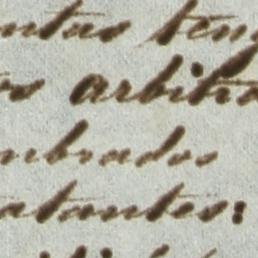 ntas ten
os arbitra
mbrados
atantes: